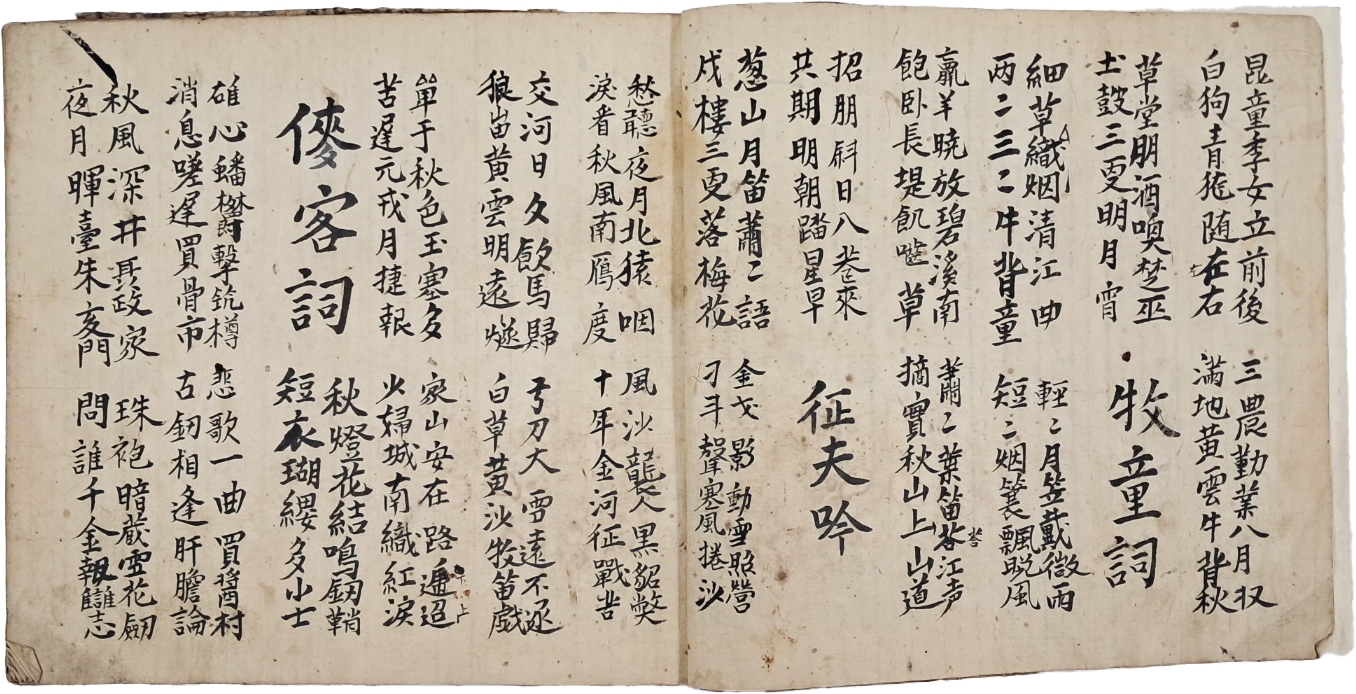 昆童季女立前後 三農勤業八月収
白狗青狵随在右 満地黄雲牛背秋
草堂朋酒嗅楚巫
土鼓三更明月宵
牧童詞
細草織烟清江曲 輕〻月笠戴微雨
両〻三〻牛背童 短〻烟簑飄晩風
羸羊暁放碧溪南 蕭〻葉笛春江声
飽卧長堤飢囓草 摘實秋山上山道
招朋斜日八巷來
共期明朝踏星早
征夫吟
葱山月笛蕭〻語 金戈影動雪照營
戍樓三更落梅花 刁斗聲寒風捲沙
愁聽夜月北猿咽 風沙襲人黒貂獘
淚看秋風南鴈度 十年金河征戰苦
交河日夂飮馬歸 弓刀大雪遠不逐
狼峀黄雲明遠燧 白草黄沙牧笛戲
單于秋色玉塞多 家山安在路逓迢
苦遅元戎月捷報 少婦城南織紅淚
俠客詞
秋燈花結鳴釰鞘
短衣瑚纓多小士
雄心蟠欝擊筑樽 悲歌一曲買醬村
消息嗟遅買骨市 古釰相逢肝膽論
秋風深井聶政家 珠袍暗蔵雪花劒
夜月暉臺朱亥門 問誰千金報讎志